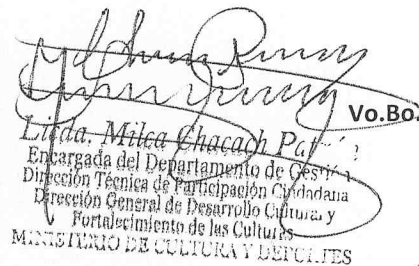 Vo.Bo.
Licda. Milca Chacach
Encargada del Departamento de
Dirección Técnica de Participación Ciudadana
Dirección General de Desarrollo Cultural y
Fortalecimiento de las Culturas
MINISTERIO DE CULTURA Y DEPORTES